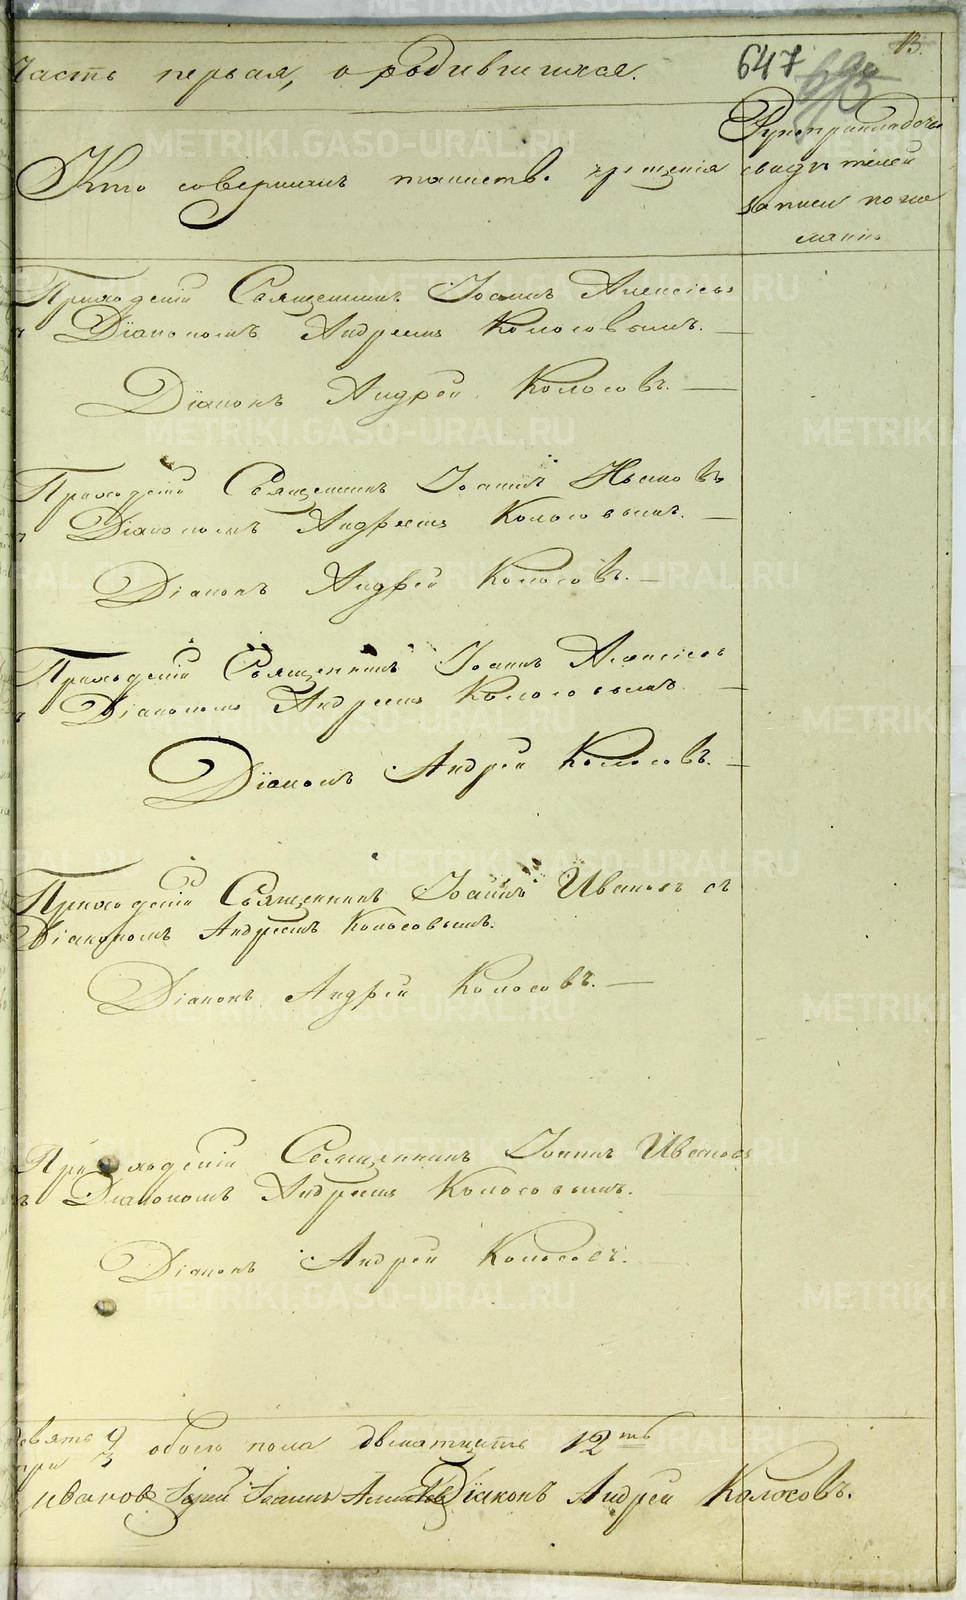 13.
647
695
Часть первая, о родившихся.
Кто совершилъ таинство крещенія
Рукоприкладство
свидѣтелей
записи по же
ланію
Приходскій Священникъ Іоаннъ Алексіевъ
съ Діакономъ Андреемъ Колосовымъ.
Діаконъ Андрей Колосовъ.
Приходскій Священникъ Іоаннъ Ивановъ
съ Діакономъ Андреемъ Колосовымъ.
Діаконъ Андрей Колосовъ.
Приходскій Священникъ Іоаннъ Алексіевъ
съ Діакономъ Андреемъ Колосовымъ.
Діаконъ Андрей Колосовъ.
Приходскій Священникъ Іоаннъ Ивановъ съ
Діакономъ Андреемъ Колосовымъ.
Діаконъ Андрей Колосовъ.
Приходскій Священникъ Іоаннъ Ивановъ
съ Діакономъ Андреемъ Колосовымъ.
Діаконъ Андрей Колосовъ.
девять 9
три 3 обоего пола двенатцать 12ть
Ивановъ Іерей Іоаннъ Діаконъ Андрей Колосовъ.
METRIKI.GASO-URAL.RU